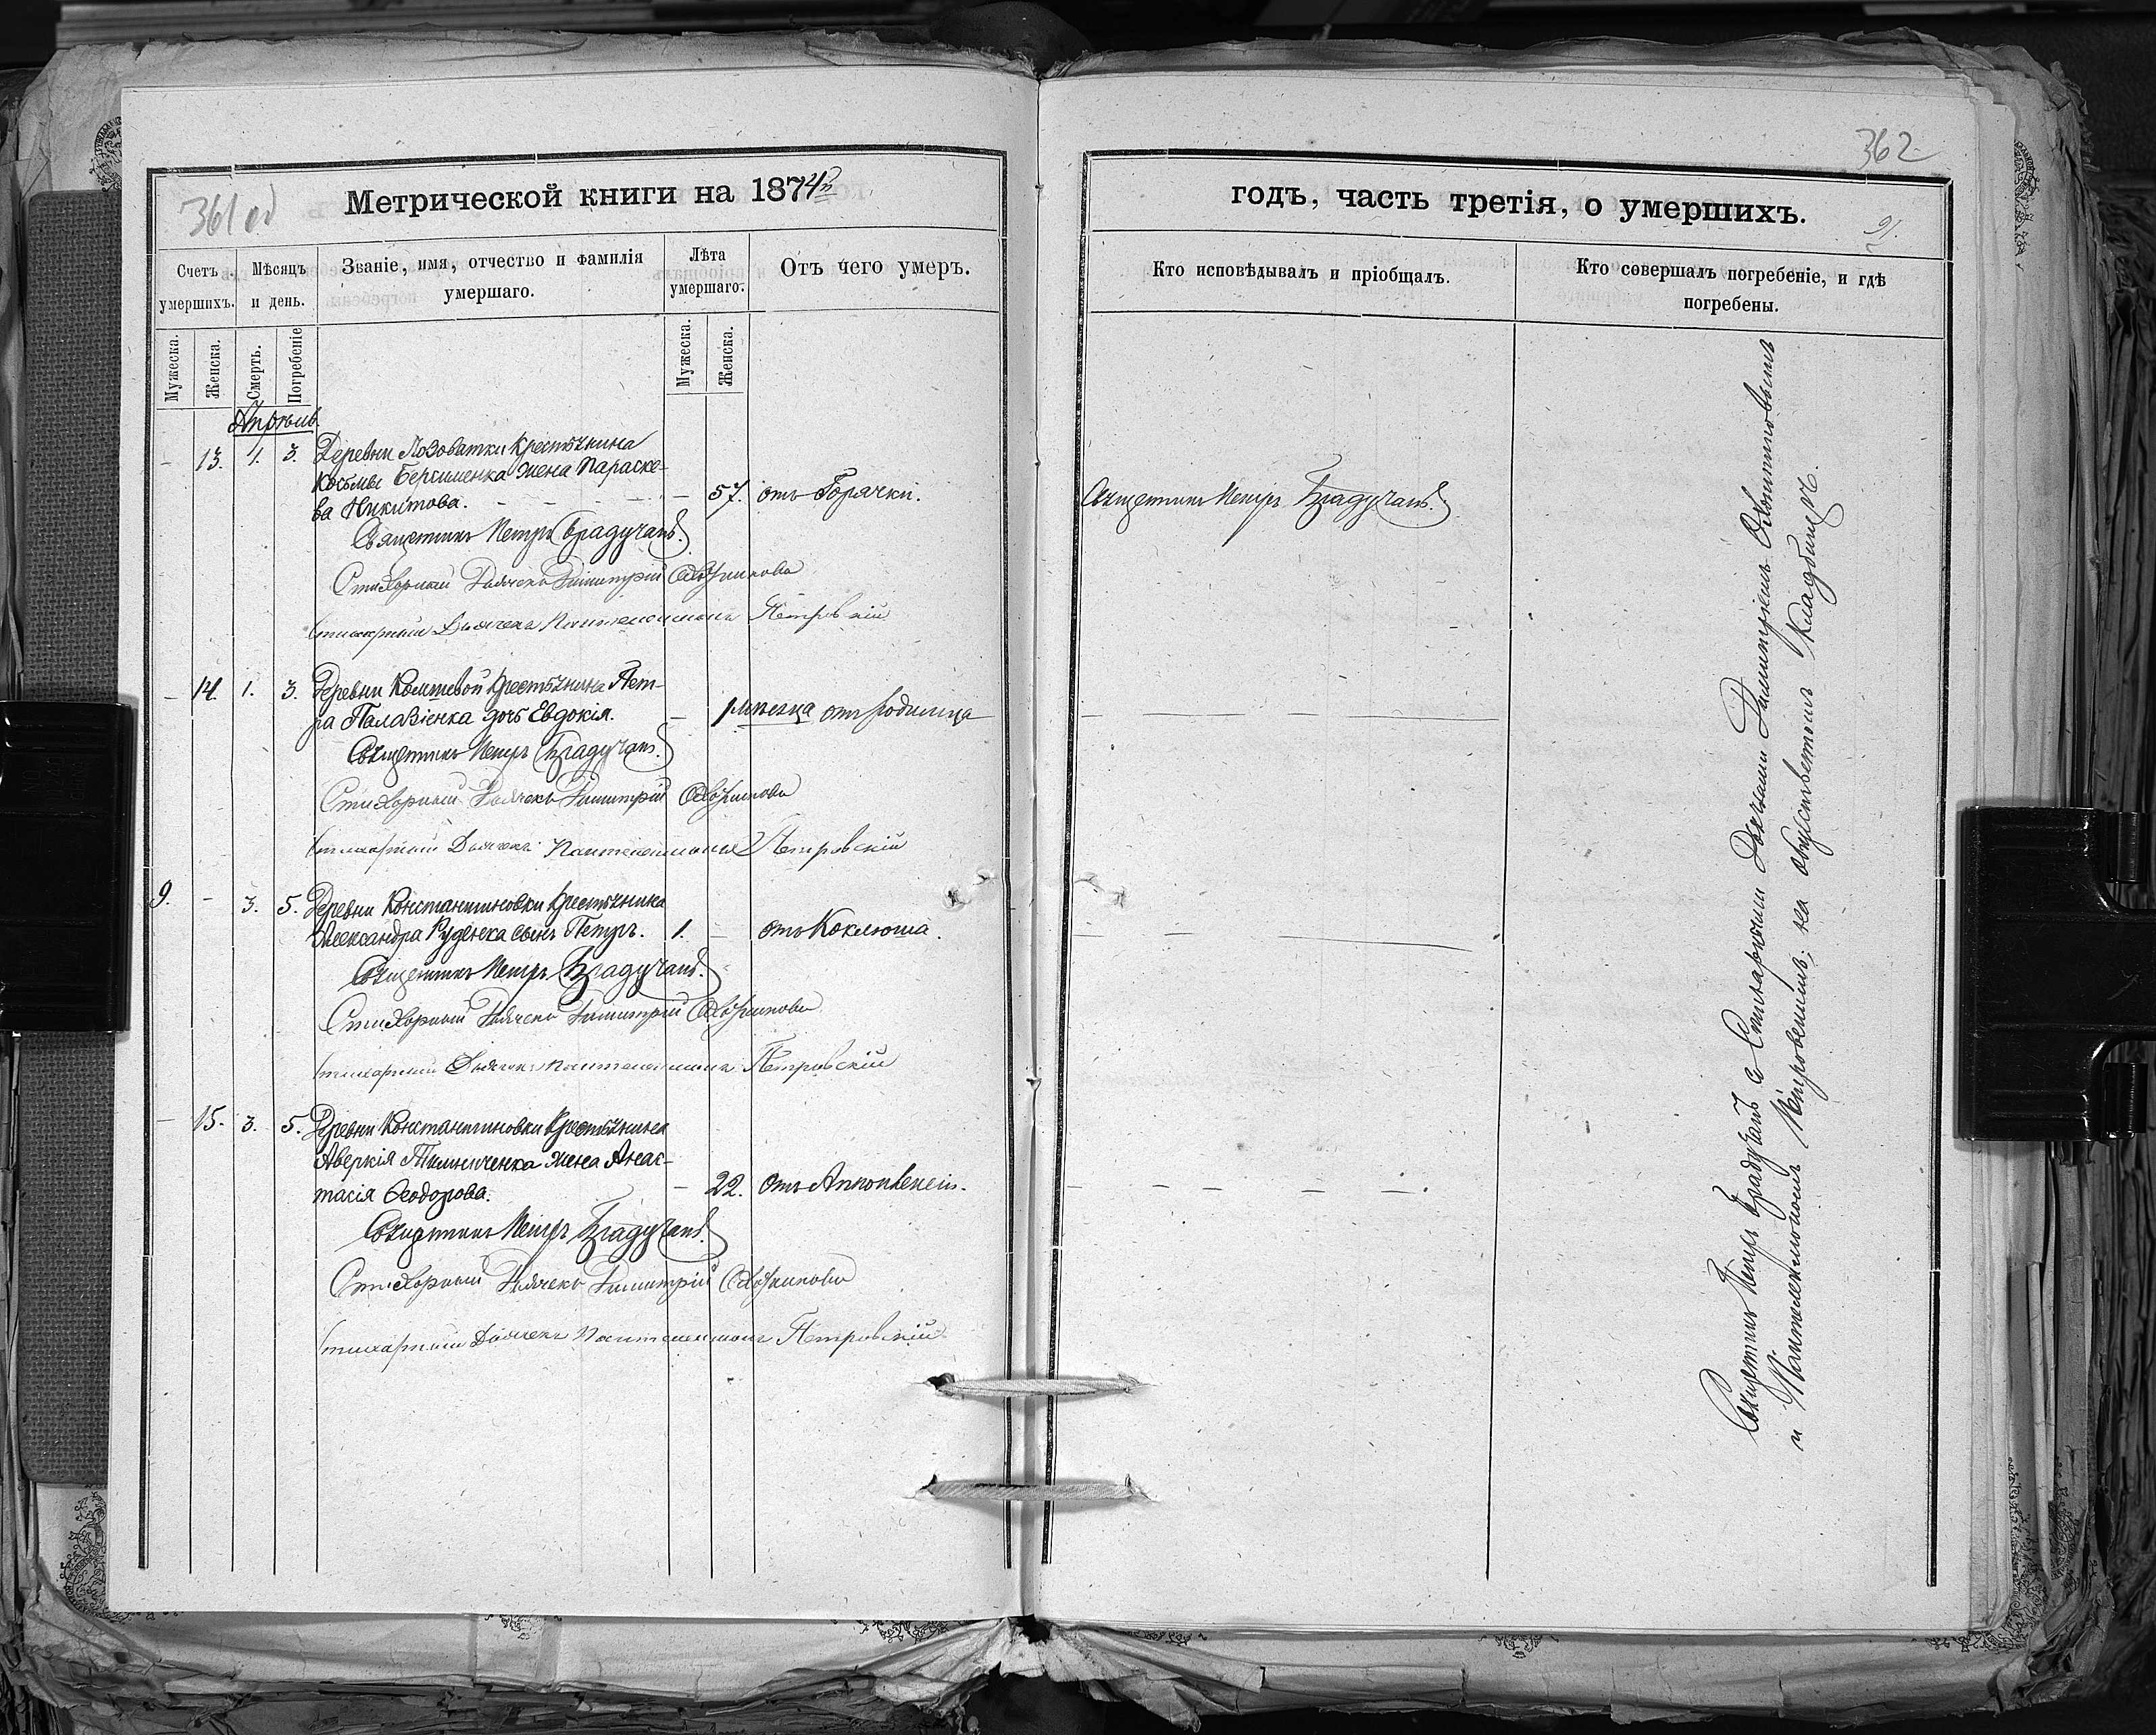 361 об
Метрической книги на 1874й
Счетъ умершихъ.
Мѣсяцъ и день.
Званіе, имя, отчество и фамилія умершаго.
Лѣта умершаго.
Отъ чего умеръ.
Мужеска.
Женска.
Смерть.
Погребеніе
Мужеска.
Женска.
Апрѣль
— 13. 1. 3. Деревни Лозоватки Крестьянина
Косьмы жена Параске-
ва Никитова. — 57. отъ Горячки.
Священникъ Петръ Брадучанъ.
Стихарный Дьячекъ Димитрій
Стихарный Дьячекъ Пантелеимонъ Петровскій
— 14. 1. 3. Деревни Крестьянина Пет-
ра дочь Евдокія. — 1 мѣсяца отъ родимца
Священникъ Петръ Брадучанъ.
Стихарный Дьячекъ Димитрій
Стихарный Дьячекъ Пантелеимонъ Петровскій
9. — 3. 5. Деревни Константиновки Крестьянина
Александра Руденка сынъ Петръ. 1. — отъ Коклюша.
Священникъ Петръ Брадучанъ.
Стихарный Дьячекъ Димитрій
Стихарный Дьячекъ Пантелеимонъ Петровскій
— 15. 3. 5. Деревни Константиновки Крестьянина
Аверкія жена Анас-
тасія Ѳеодорова. — 22. отъ Апоплексіи.
Священникъ Петръ Брадучанъ.
Стихарный Дьячекъ Димитрій
Стихарный Дьячекъ Пантелеимонъ Петровскій
362
годъ, часть третія, о умершихъ.
91.
Кто исповѣдывалъ и пріобщалъ.
Кто совершалъ погребеніе, и гдѣ
погребены.
Священникъ Петръ Брадучанъ.
Священникъ Петръ Брадучанъ с Стихарными Дьячками Димитріемъ
и Пантелеимономъ Петровскимъ; на общественномъ кладбищѣ.